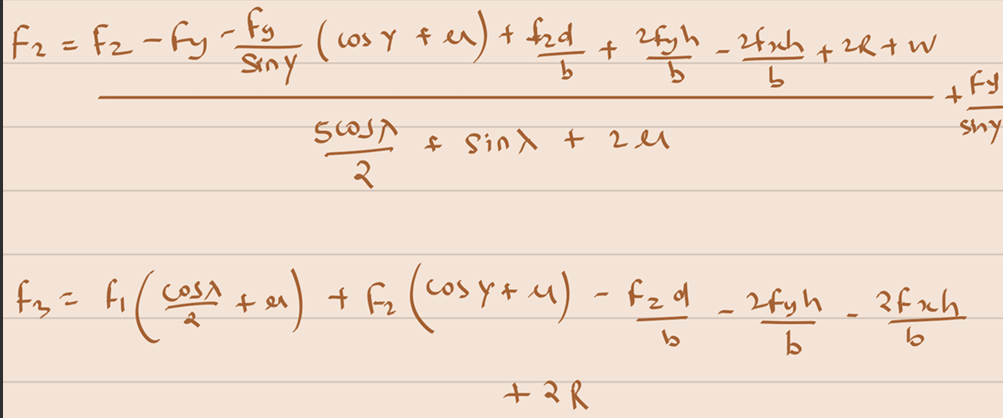 F₂ = Fz - Fy - Fy/sinγ (cosγ + μ) + Fzd/b + 2Fyh/b - 2Fxh/b + 2R + W
5cosλ/2 + sinλ + 2μ
+ Fy/sinγ
F₃ = F₁(cosλ/2 + μ) + F₂(cosγ + μ) - Fzd/b - 2Fyh/b - 2Fxh/b
+ 2R